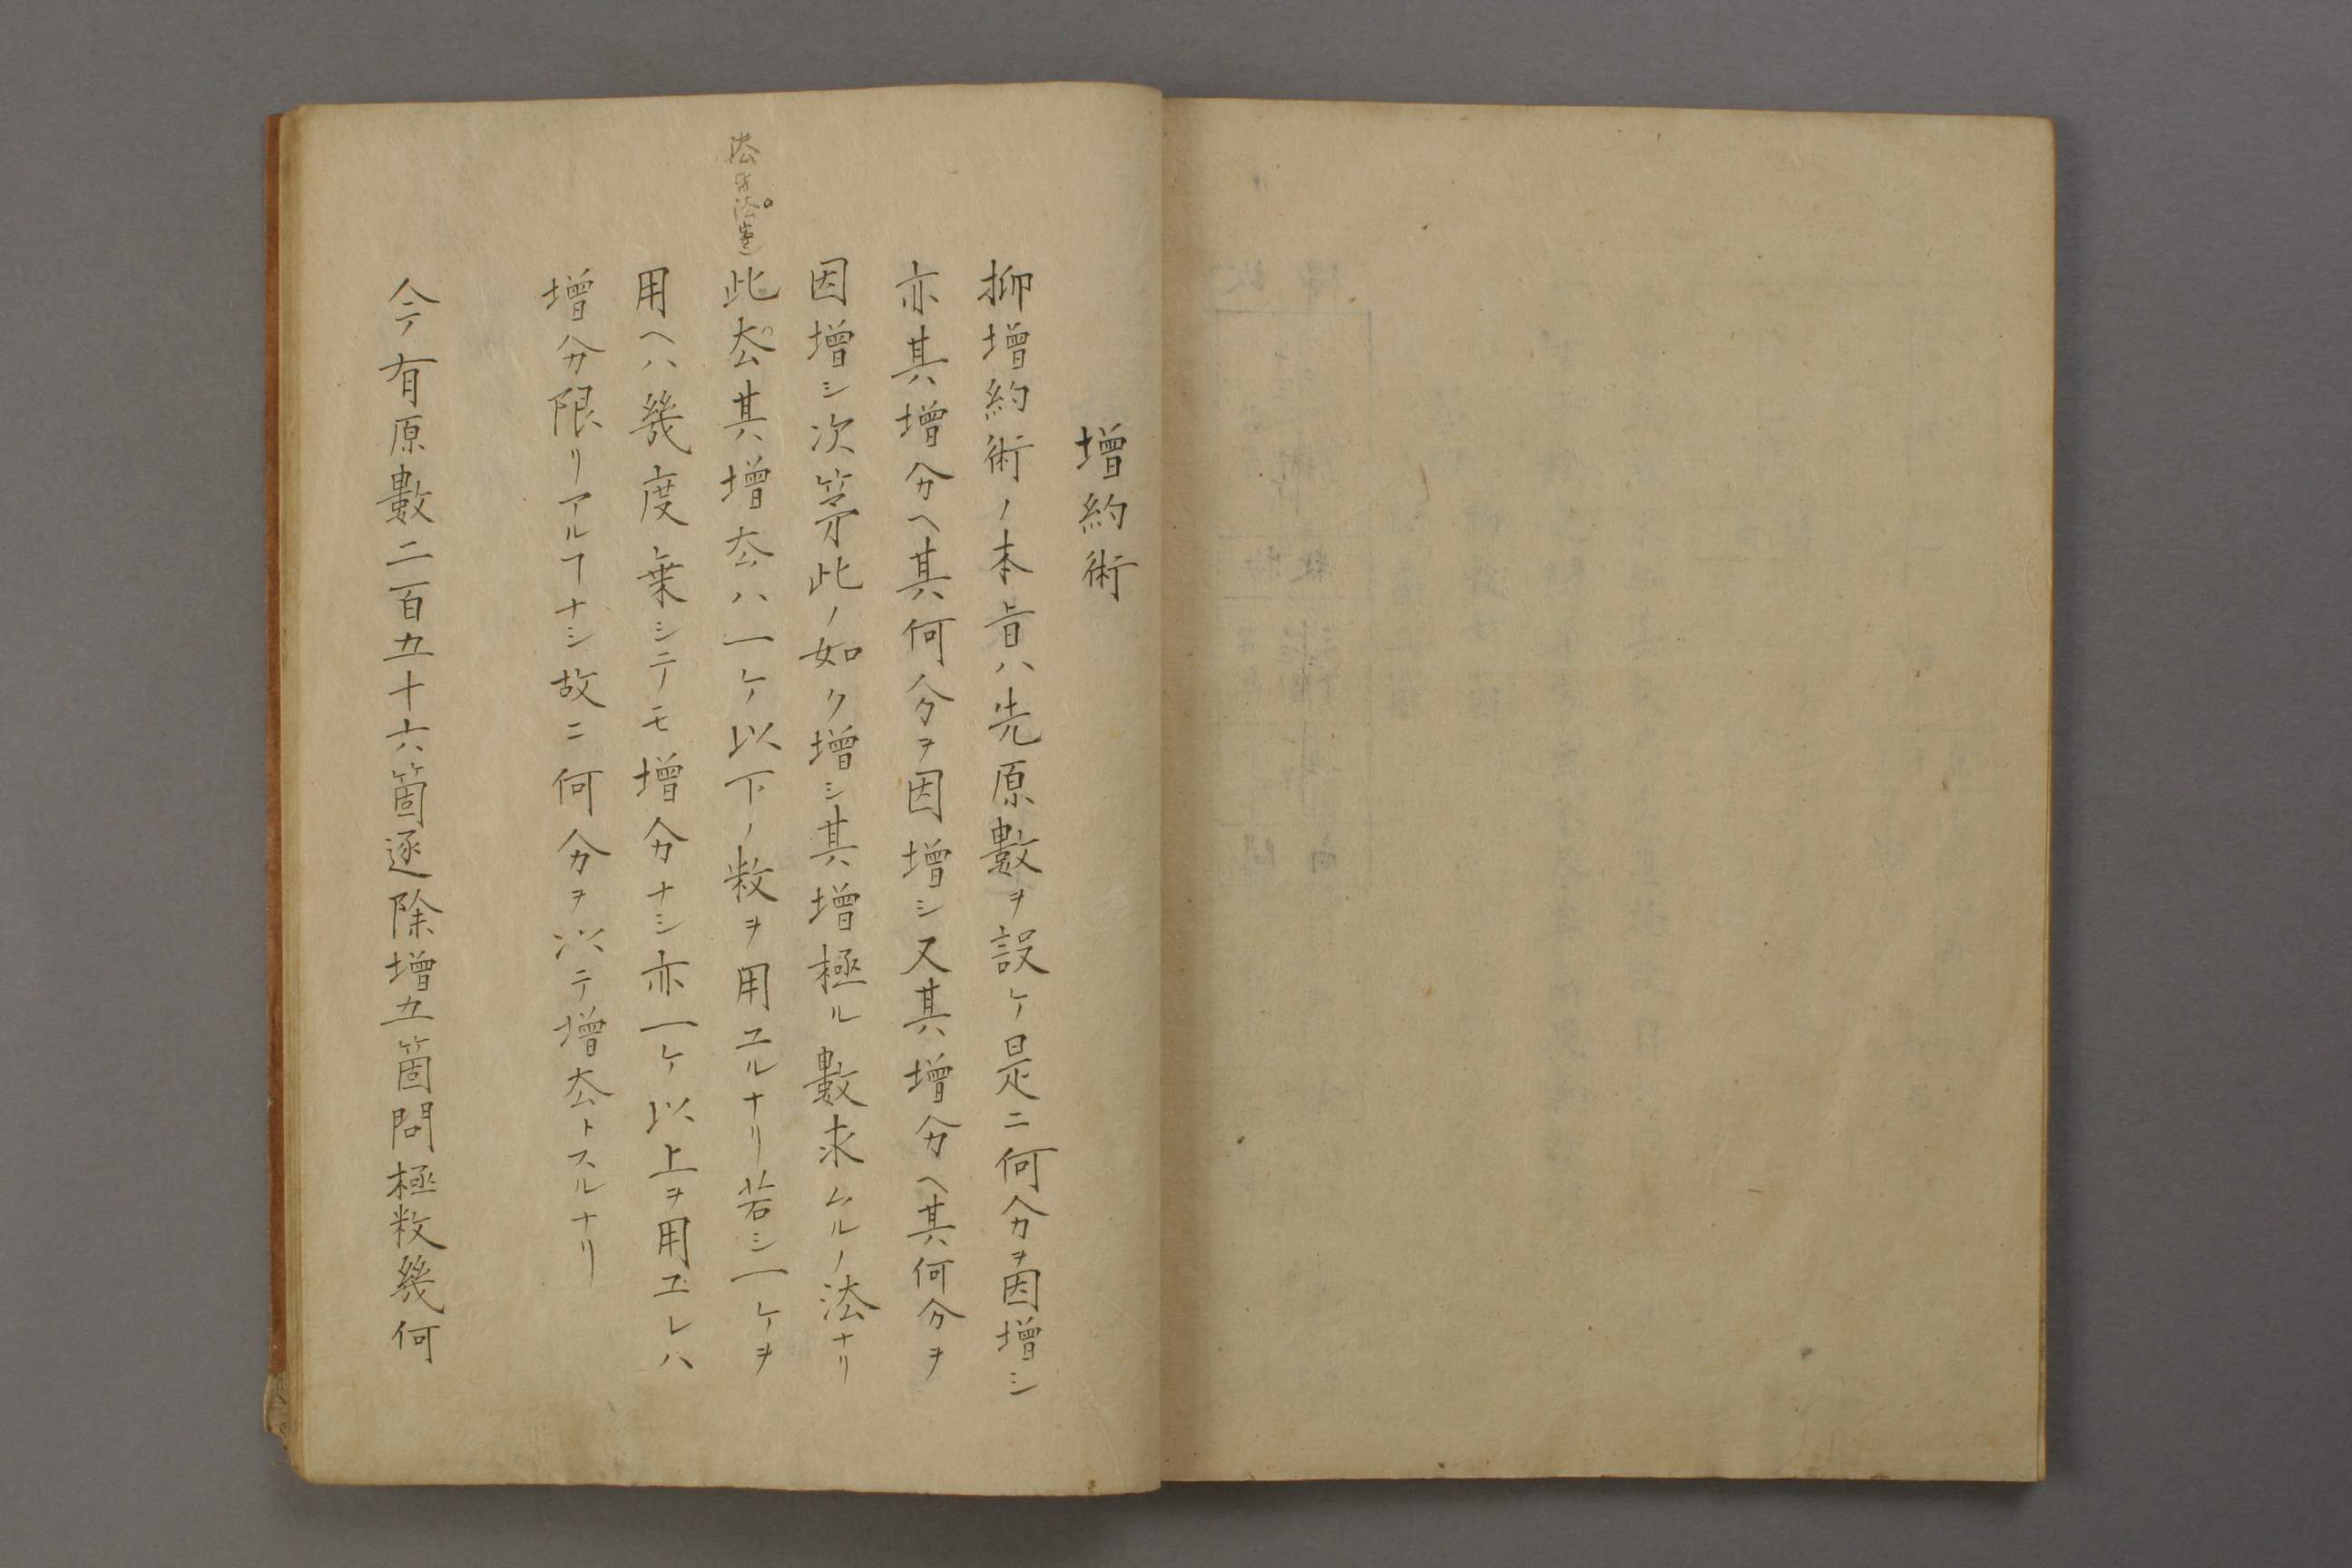 增約術
抑增約術ノ本旨ハ先原數ヲ設ケ是ニ何分ヲ因增シ
亦其增分ヘ其何分ヲ因增シ又其增分ヘ其何分ヲ
因增シ次第此ノ如ク增シ其增極ル數求ムルノ法ナリ
此 其增 ハ一ケ以下ノ数ヲ用ユルナリ若シ一ケヲ
用ヘハ幾度乗シテモ增分ナシ亦一ケ以上ヲ用ユレハ
增分限リアルヿナシ故ニ何分ヲ以テ增 トスルナリ
今有原數二百五十六箇逐除增五箇問極数幾何